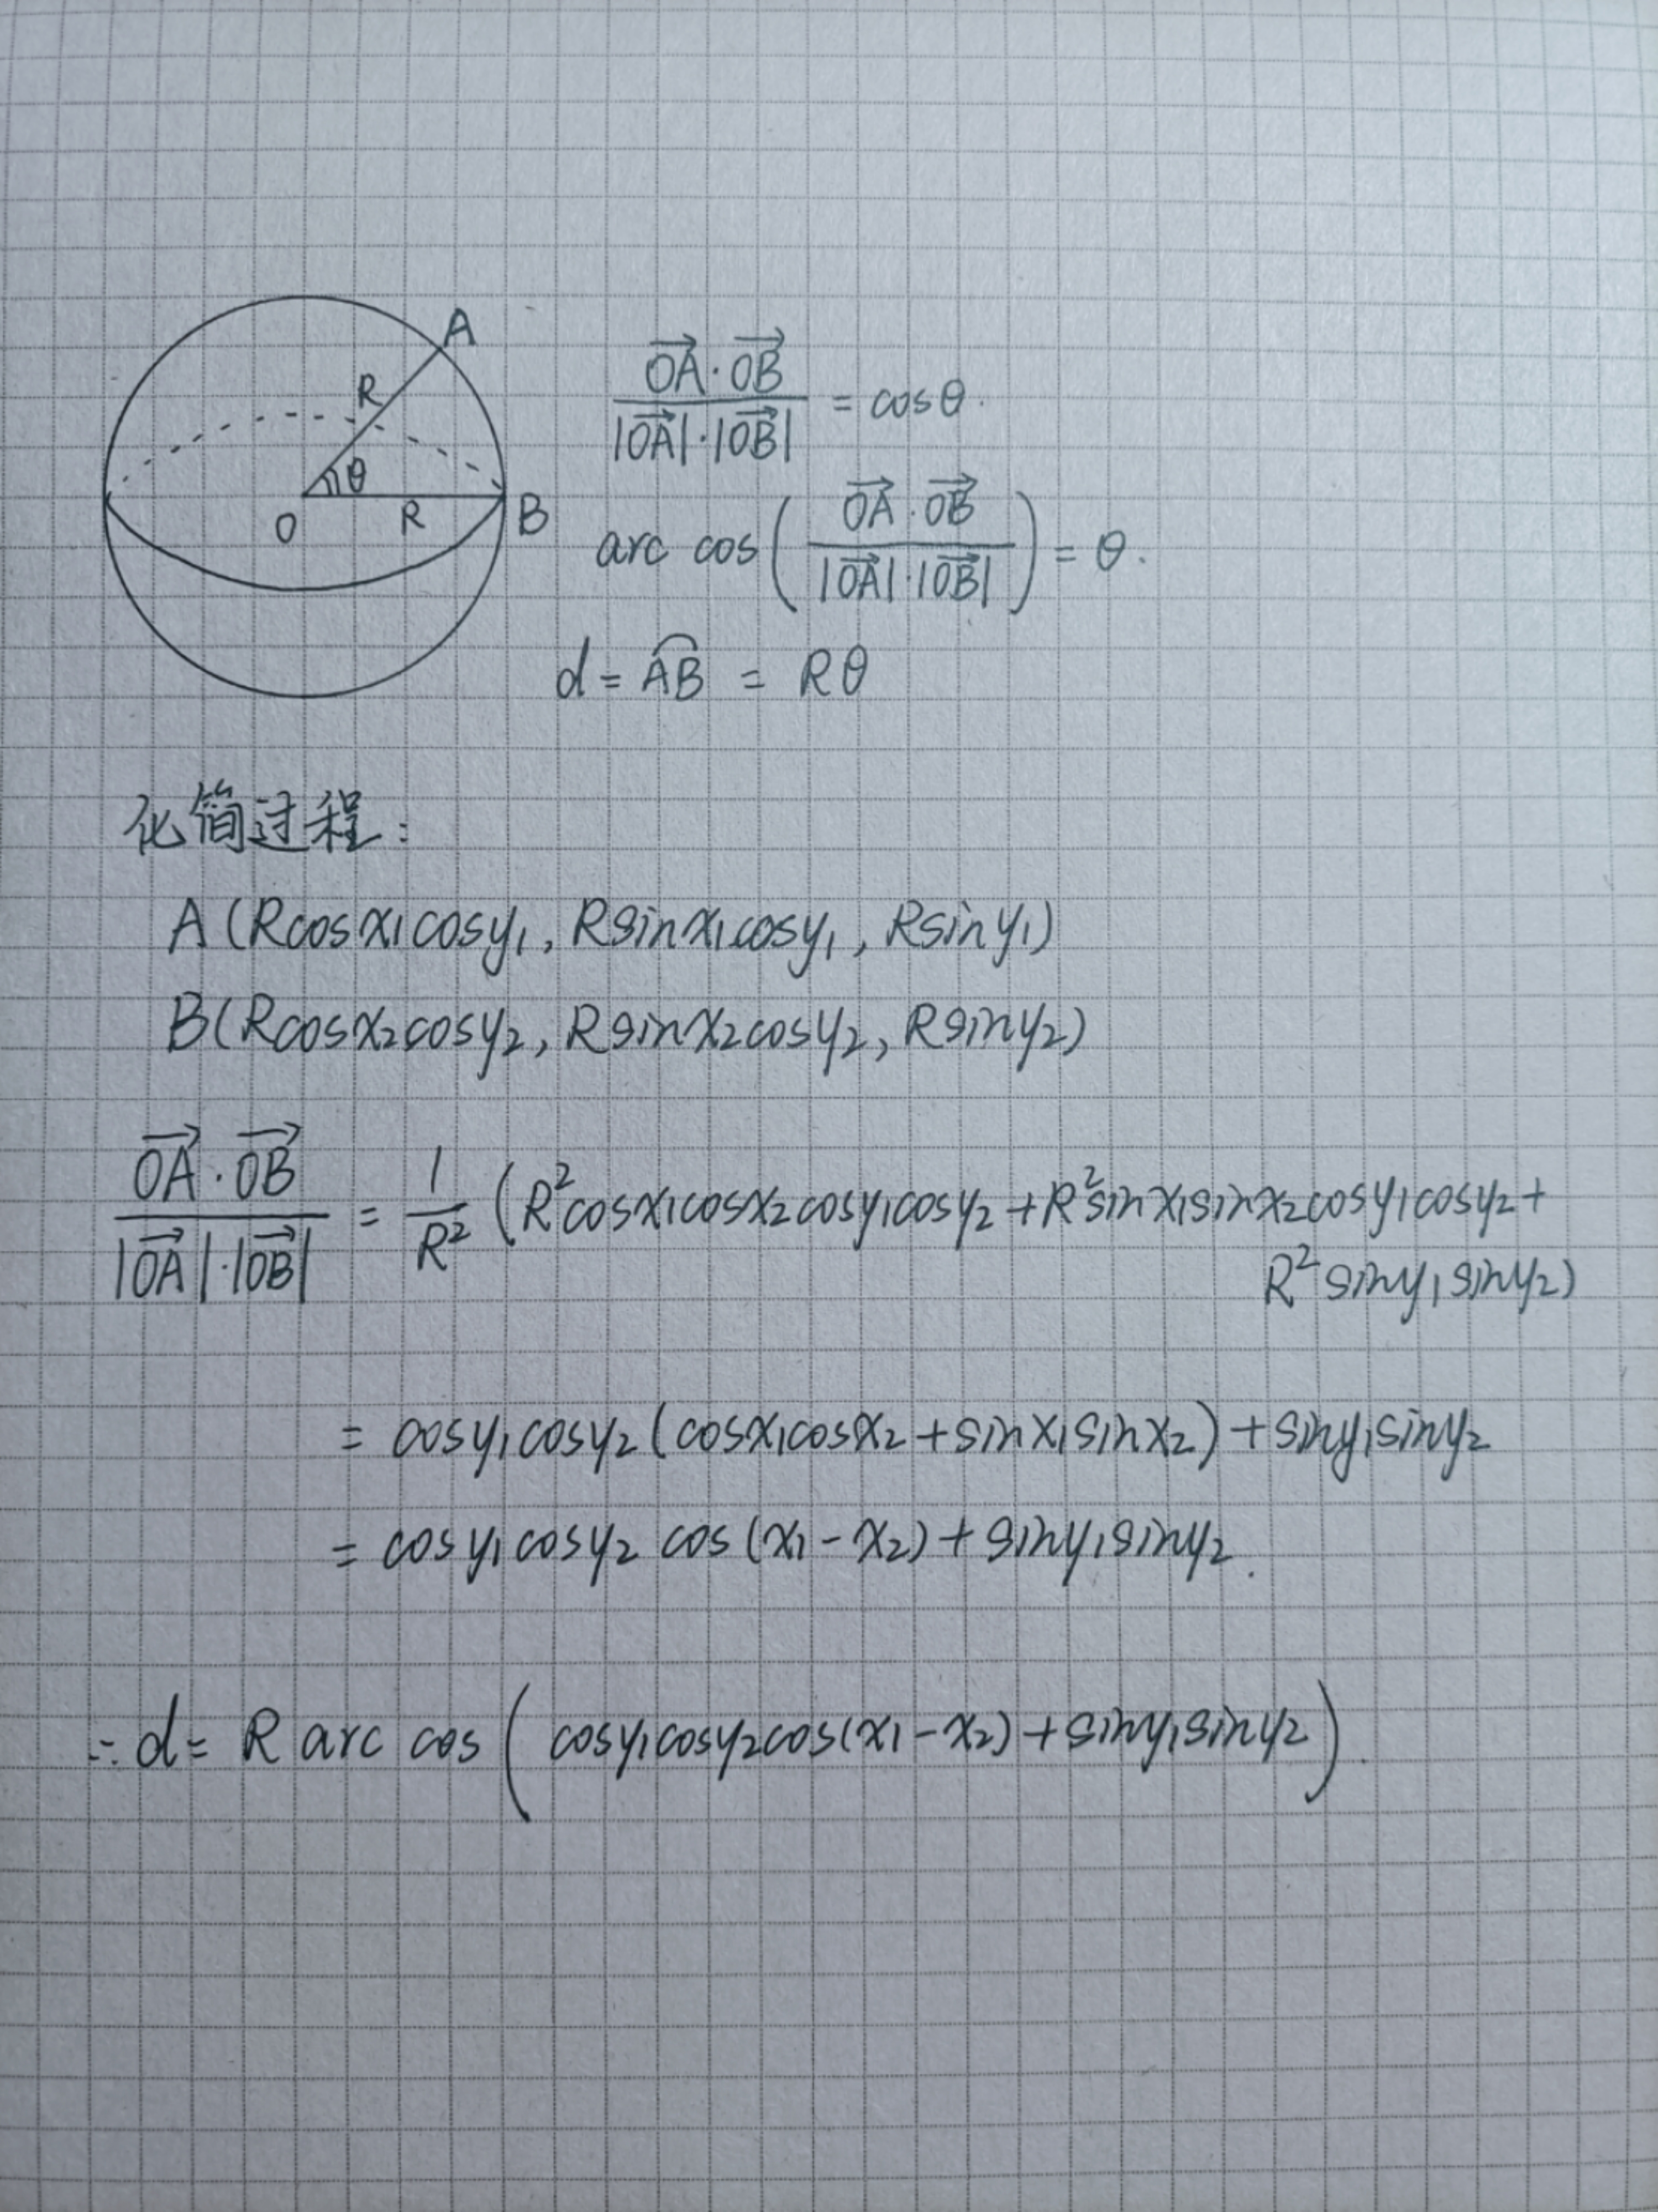 A
R
θ
O
R
B
OA⃗·OB⃗ / |OA⃗|·|OB⃗| = cosθ.
arc cos( OA⃗·OB⃗ / |OA⃗|·|OB⃗| ) = θ.
d = A͡B = Rθ
化简过程:
A(Rcosx₁cosy₁, Rsinx₁cosy₁, Rsiny₁)
B(Rcosx₂cosy₂, Rsinx₂cosy₂, Rsiny₂)
OA⃗·OB⃗ / |OA⃗|·|OB⃗| = 1/R² (R²cosx₁cosx₂cosy₁cosy₂ + R²sinx₁sinx₂cosy₁cosy₂ +
R²siny₁siny₂)
= cosy₁cosy₂(cosx₁cosx₂ + sinx₁sinx₂) + siny₁siny₂
= cosy₁cosy₂ cos(x₁ - x₂) + siny₁siny₂.
∴ d = R arc cos( cosy₁cosy₂cos(x₁ - x₂) + siny₁siny₂ ).